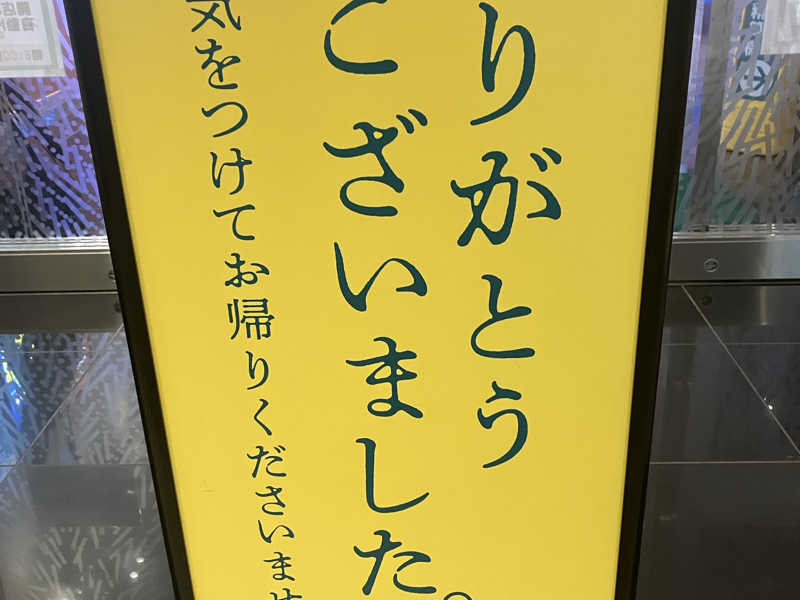 りがとう
ございました。
気をつけてお帰りくださいませ